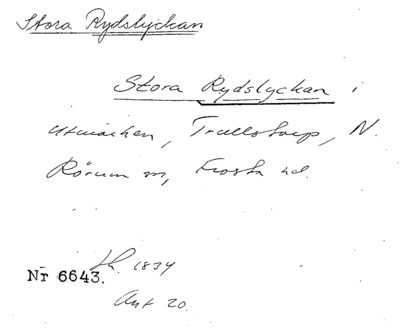 Stora Rydslyckan
Stora Rydslyckan i
Utmarken, Trullstorp, N.
Rörum sn, Frosta hd.
Lh. 1834
Nr 6643.
Akt 20.